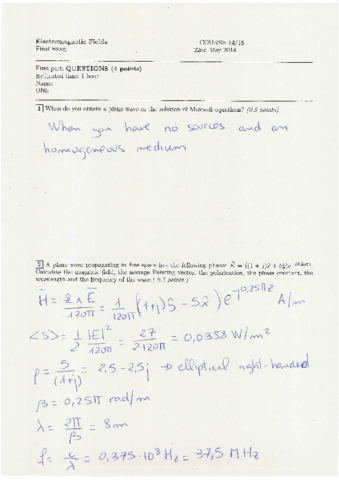 Electromagnetic Fields COURSE 14/15
Final exam 22nd May 2014
First part: QUESTIONS (4 points)
Estimated time: 1 hour
Name:
DNI:
1 When do you obtain a plane wave as the solution of Maxwell equations? (0.5 points)
When you have no sources and an
homogeneous medium
2 A plane wave propagating in free space has the following phasor E = ((1 + j)x̂ + 5ŷ)e
Calculate the magnetic field, the average Poynting vector, the polarization, the phase constant, the
wavelength and the frequency of the wave. (0.5 points)
H̄ = ẑ∧Ē/120π = 1/120π ((1+j)ŷ - 5x̂) e^-j0,25πz A/m
<S> = 1/2 |E|²/120π = 27/2·120π = 0,0358 W/m²
ρ = 5/(1+j) = 2,5-2,5j → elliptical right-handed
β = 0,25π rad/m
λ = 2π/β = 8m
f = c/λ = 0,375·10⁸ Hz = 37,5 MHz